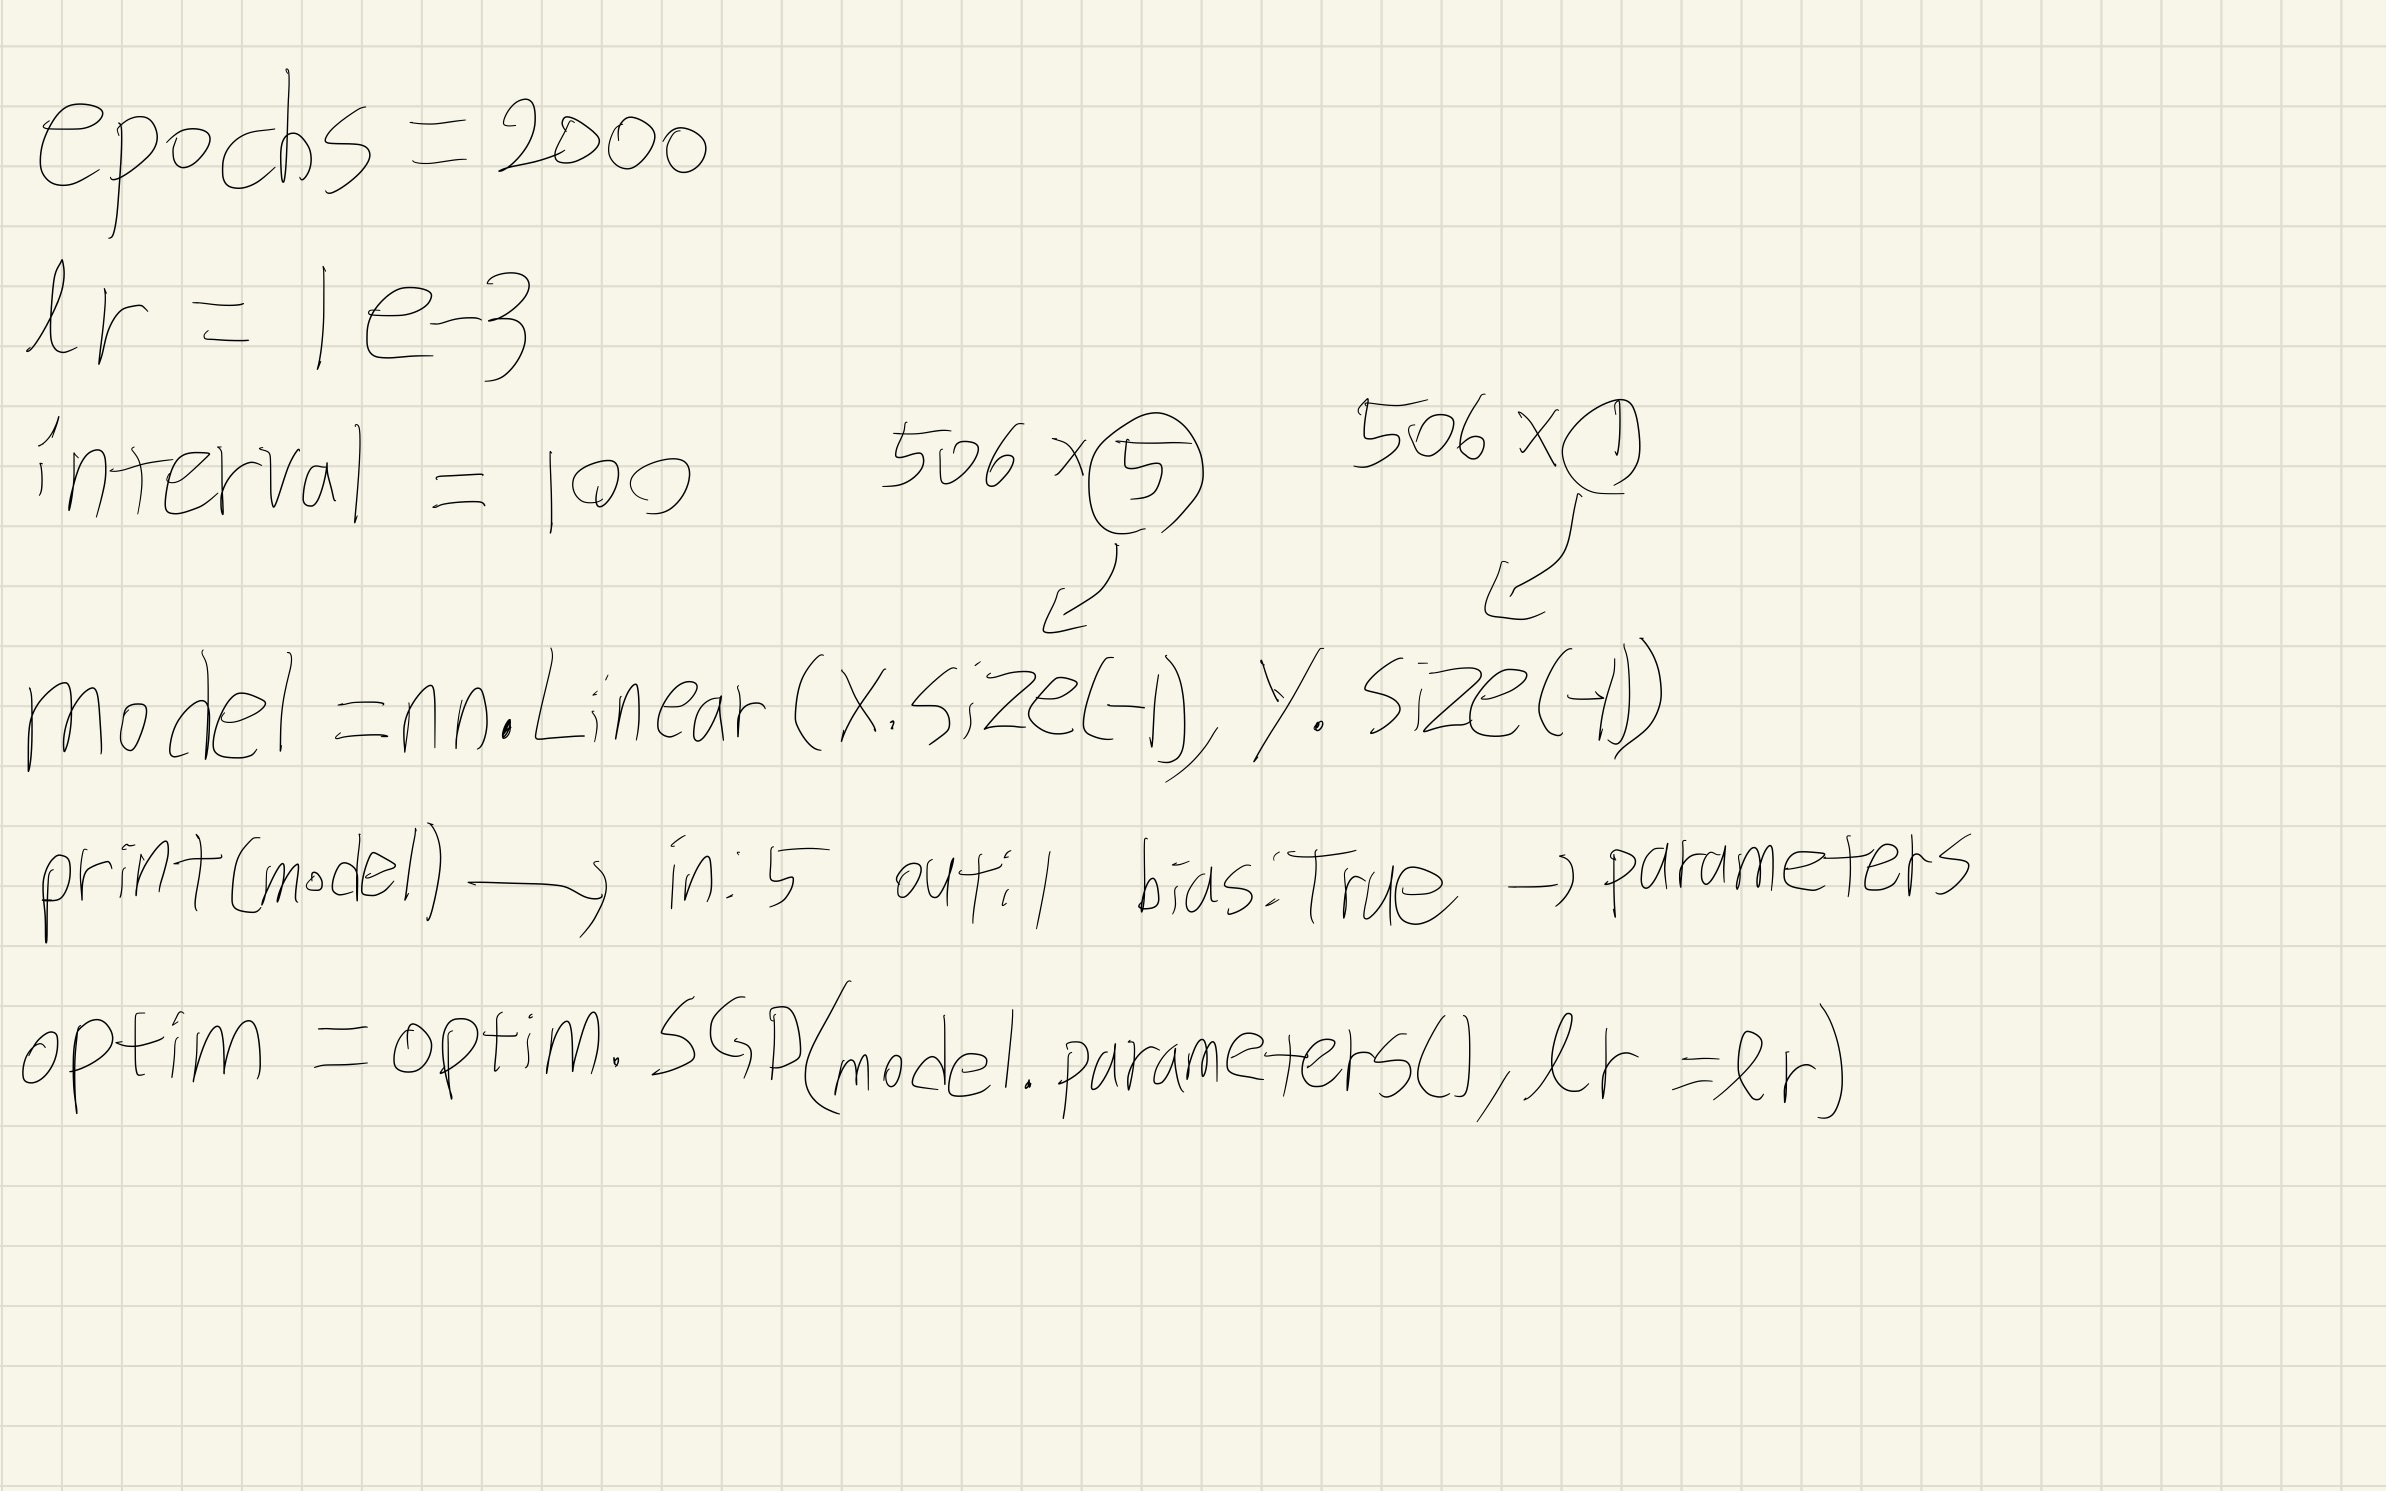 epochs = 2000
lr = 1e-3
interval = 100 506 x 5 506 x 1
model = nn.Linear(x.size(-1), y.size(-1))
print(model) → in:5 out:1 bias:True → parameters
optim = optim.SGD(model.parameters(), lr = lr)